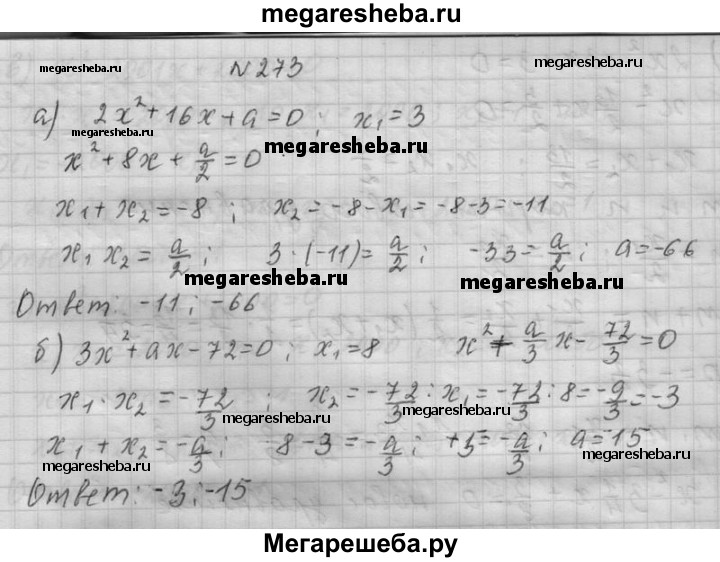 megaresheba.ru
megaresheba.ru № 273 megaresheba.ru
а) 2x² + 16x + a = 0 ; x₁ = 3
megaresheba.ru megaresheba.ru
x² + 8x + a/2 = 0
x₁ + x₂ = -8 ; x₂ = -8 - x₁ = -8 - 3 = -11
x₁ x₂ = a/2 ; 3 · (-11) = a/2 ; -33 = a/2 ; a = -66
megaresheba.ru megaresheba.ru
Ответ: -11 ; -66
б) 3x² + ax - 72 = 0 ; x₁ = 8 x² + a/3 x - 72/3 = 0
x₁ · x₂ = -72/3 ; x₂ = -72/3 : x₁ = -72/3 : 8 = -9/3 = -3
megaresheba.ru megaresheba.ru
x₁ + x₂ = -a/3 ; 8 - 3 = -a/3 ; +5 = -a/3 ; a = -15
megaresheba.ru megaresheba.ru
Ответ: -3 ; -15
Мегарешеба.ру